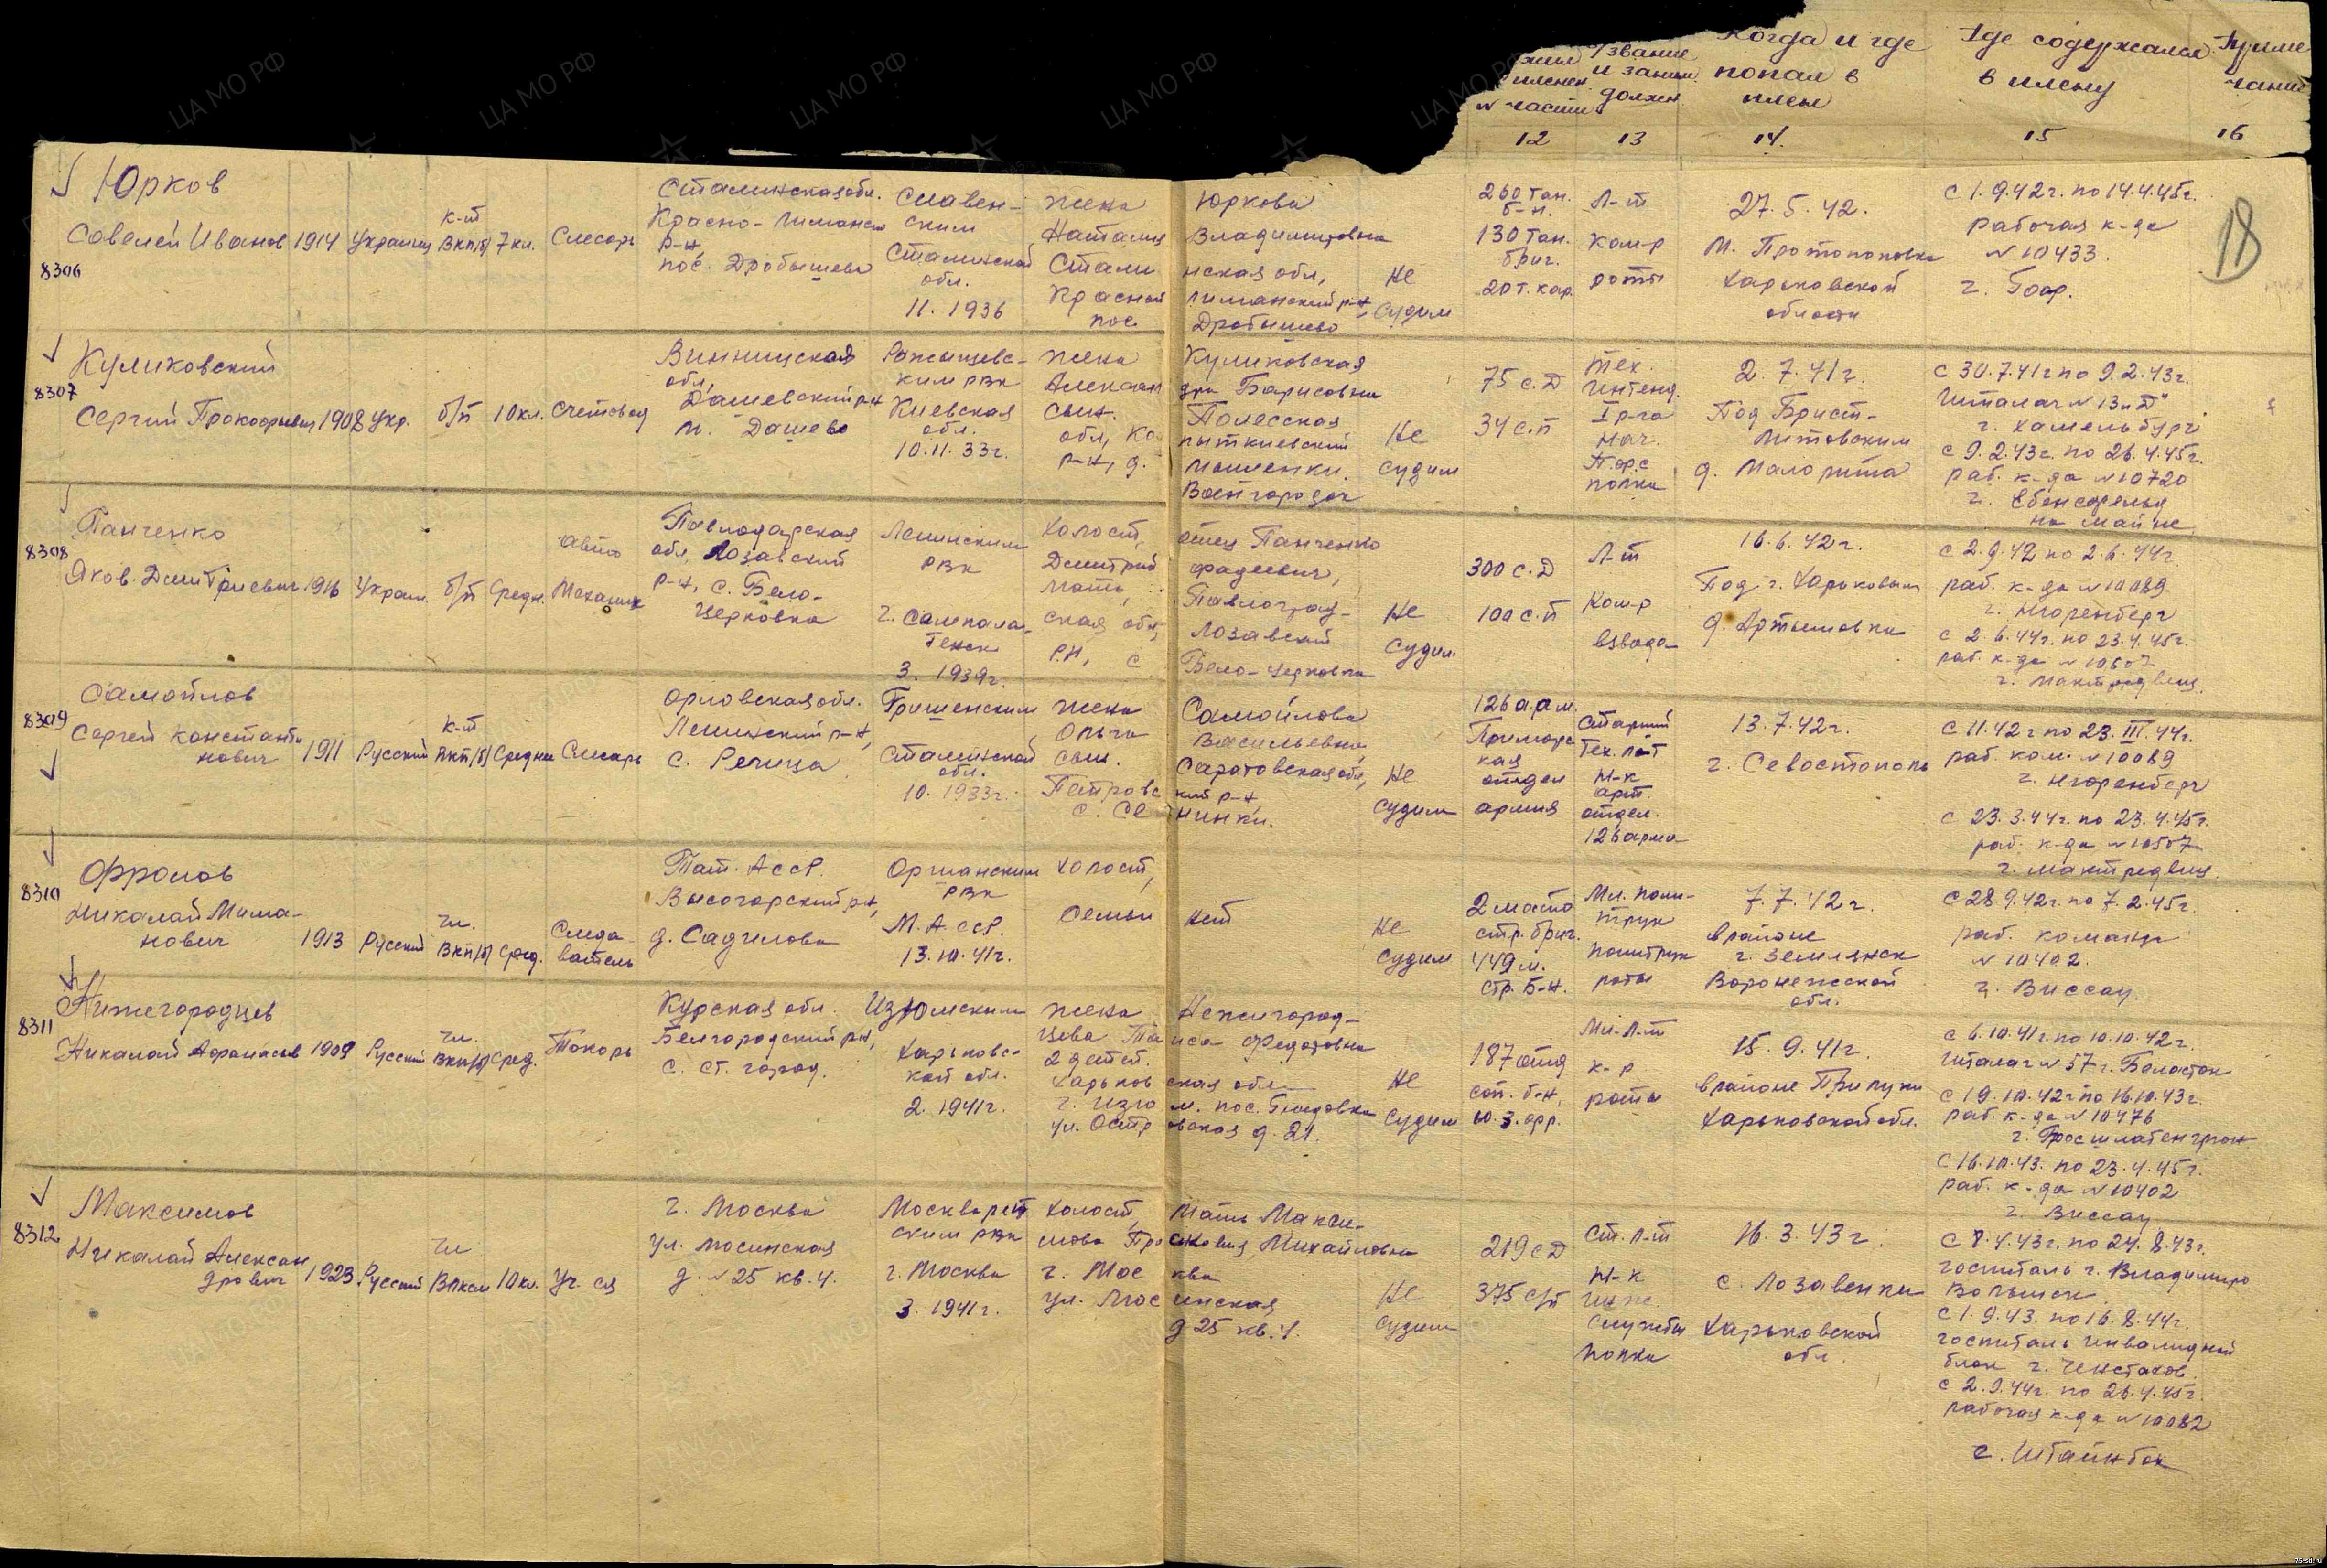 звание Когда и где Где содержался Приме
и заним. попал в в плену чание
№ части должн. плен
12 13 14. 15 16
18
Юрков
Савелей Иванов 1914 Украинец к-т ВКП/б/ 7 кл. Слесарь
8306
Сталинская обл.
Красно-Лиманск
р-н,
пос. Дробышево
Славен-
ским
Сталинской
обл.
11. 1936
жена Юркова
Наталия Владимировна
Стали нская обл,
Красной лиманский р-н,
пос. Дробышево
Не
судим
260 тан.
б-н.
130 тан.
бриг.
20 т. кор.
Л-т
ком-р
роты
27. 5. 42.
М. Протопоповка
Харьковской
области
с 1.9.42г. по 14.4.45г.
рабочая к-да
№ 10433.
Куликовский
8307
Сергий Прокофьевич 1908 Укр. б/п 10 кл. счетовод
Винницкая
обл,
Дашевский р-н
м. Дашево
ким РВК
Киевская
обл.
10. 11. 33г.
жена Куликовская
Алексан дра Барисовна
Полесская
обл,
р-н, д.
Военгородок
Не
судим
75 с.д
34 с.п
тех.
интенд.
I р-га
нач.
полка
2. 7. 41г.
Под Брист-
Литовским
д. Малорита
с 30.7.41г по 9.2.43г.
Шталаг № 13 „Д“
г. Хамельбург
с 9.2.43г. по 26.4.45г.
раб. к-да № 10720
на Майне
Панченко
8308
Яков Дмитриевич 1916 Украин. б/п Средн. Авто
Механик
Павлодарская
обл, Лозавский
р-н, с. Бело-
церковка
Ленинским
РВК
г. Семпала-
тенск
3. 1939г.
Холост, отец Панченко
Дмитрий Фадеевич,
мать,
Павлоград-
ская обл,
Лозавский
р.н, с
Бело-церковка
Не
судим
300 с.д
100 с.п
Л-т
Ком-р
взвода
16. 6. 42г.
Под г. Харьковым
д. Артемовка
с 2.9.42 по 2.6.44г
раб. к-да № 10089
г. Нюренберг
с 2.6.44г. по 23.4.45г.
раб. к-да № 10507
г. Мактредвиц.
Самойлов
8309
Сергей Константи
нович 1911 Русский к-т ВКП/б/ Средне Слесарь
Орловская обл.
Ленинский р-н,
с. Речица
Гришенским
Сталинской
обл.
10. 1933г.
жена Самойлова
Ольга Васильевна,
сын. Саратовская обл,
Петровс кий р-н,
с. Се нинки.
Не
судим
126 а.р.м.
Приморс
кая
отдел
армия
Старший
Тех. л-т
Н-к
арт
отдел.
126 арма
13. 7. 42г.
г. Севостополь
с 11.42г по 23. III. 44г.
раб. ком. № 10089
г. Нюренберг
с 23.3.44г. по 23.4.45г.
раб. к-да № 10507
г. Мактредвиц
Фролов
8310
Николай Мима-
нович 1913 Русский чл. ВКП/б/ Сред. Следа-
ватель
Тат. АССР.
Высогорский р-н,
д. Садилово
РВК
М. АССР.
13. 10. 41г.
холост,
семьи нет
Не
судим
2 мото
стр. бриг.
449 м.
стр. б-н.
Мл. поли-
трук
политрук
роты
7. 7. 42г.
в районе
г. Землянск
Воронежской
обл.
с 28.9.42г. по 7.2.45г.
раб. команд
№ 10402.
г. Виссау.
Нижегородцев
8311
Николай Афанасьев 1909 Русский чл. ВКП/б/ сред. Токарь
Курская обл.
Белгородский р-н,
с. ст. город.
Изюмским
Харьковс-
кой обл.
2. 1941г.
жена Нежигород-
цева Та иса Федотовна
2 детей.
Харьков ская обл
г. Изю м. пос. Гнидовка
ул. Остр овская д. 21.
Не
судим
187 отд
сап. б-н,
ю. з. фр.
Мл. л-т
к-р
роты
15. 9. 41г.
в районе Прилуки
Харьковской обл.
с 6.10.41г. по 10.10.42г.
Шталаг № 57 г. Белосток
с 19.10.42г по 16.10.43г.
раб. к-да № 10476
с 16.10.43. по 23.4.45г.
раб. к-да № 10402
г. Виссау
Максимов
8312
Николай Алексан
дрович 1923 Русский чл ВЛКСМ 10 кл. Уч. ся
г. Москва
ул. Мосинская
д. № 25 кв. 4.
Москварет
ским РВК
г. Москва
3. 1941г.
холост, Мать Макси-
мова Про сковия Михайловна
г. Мос ква
ул. Мос инская
д 25 кв. 4.
Не
судим
219 с Д
375 с/п
Ст. л-т
Н-к
службы
полка
16. 3. 43г.
с. Лозавенки
Харьковской
обл.
с 8.4.43г. по 24.8.43г.
госпиталь г. Владимиро
Волынск.
с 1.9.43. по 16.8.44г.
госпиталь инвалидный
блок г. Ченстахов.
с 2.9.44г. по 26.4.45г.
рабочая к-да № 10082
с. Штайнбок